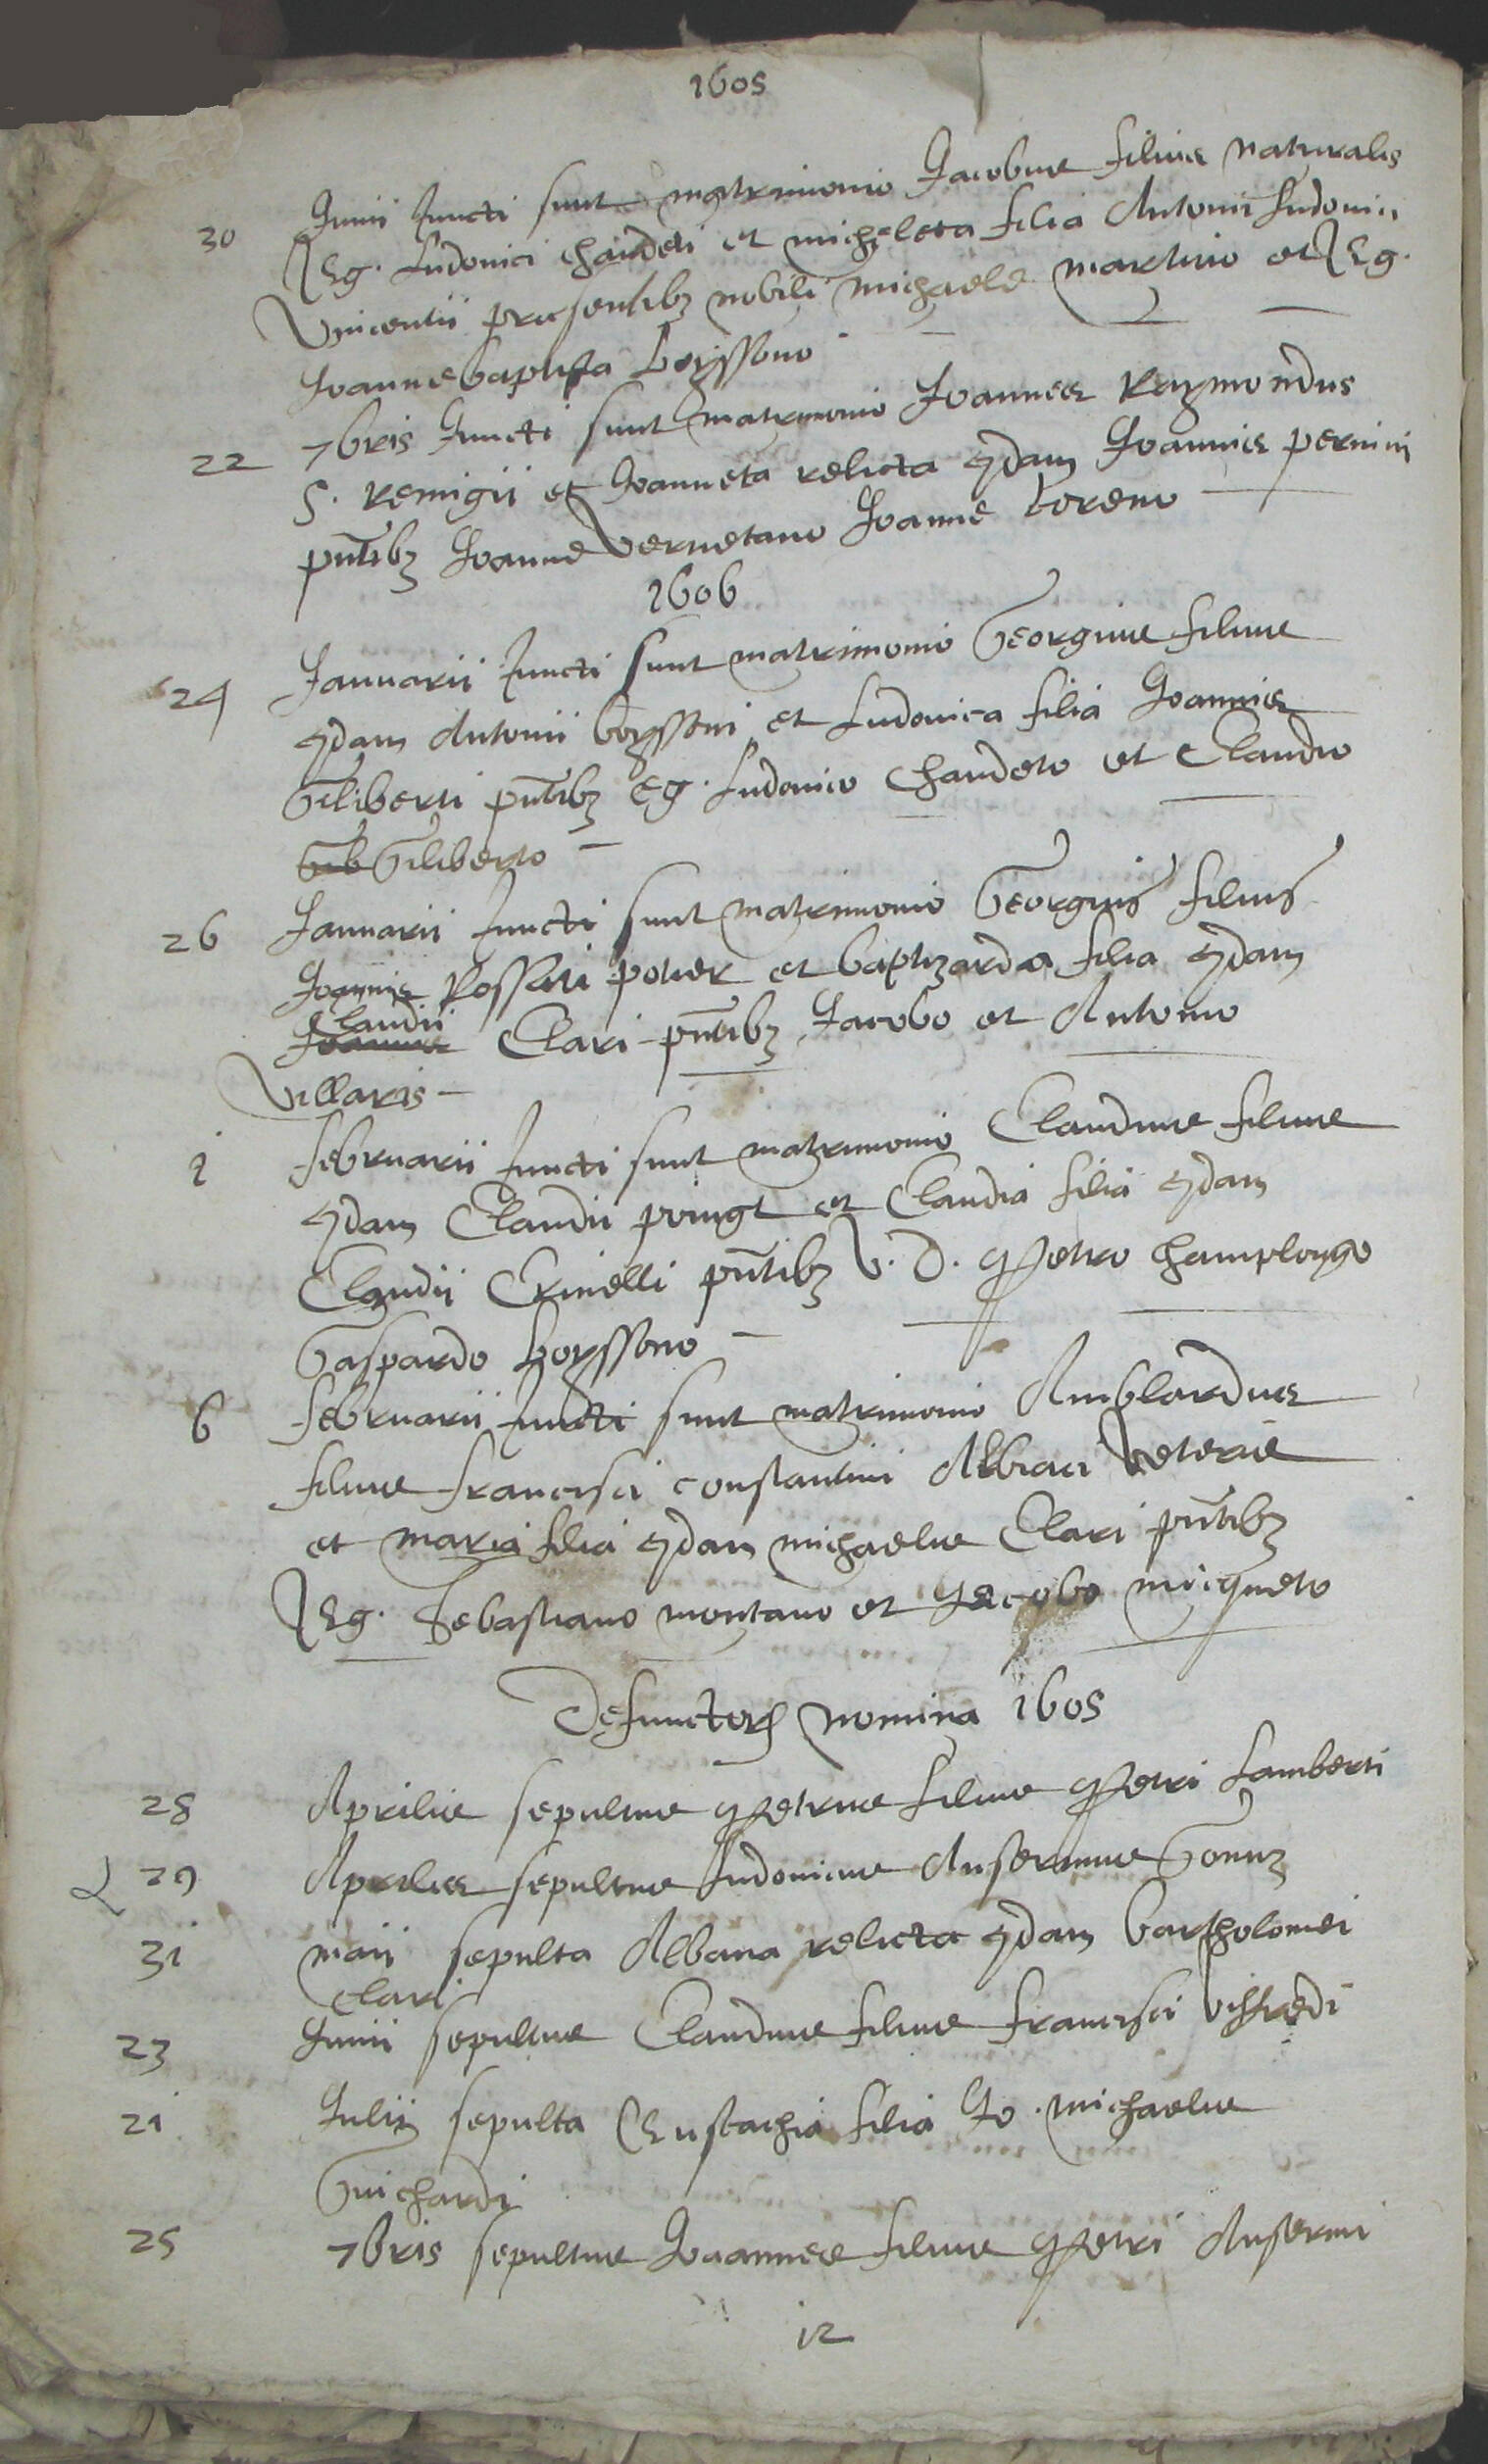 1605
30 Junii Juncti sunt matrimonio Jacobus filius naturalis
Eg. Ludovici Chaudeti et micheleta filia Antonii Ludovici
Vincentii praesentibꝫ nobili michaele martino et Eg.
Joanne baptista boyssono
22 7bris Juncti sunt matrimonio Joannes Raymondus
S. Remigii et Joanneta relicta qdam Joannis pernini
pñtibꝫ Joanne Vernetano Joanne boreno
1606
24 Januarii Juncti sunt matrimonio Georgius filius
qdam Antonii boyssoni et Ludovica filia Joannis
Giliberti pñtibꝫ Eg. Ludovico Chaudeto et Claudio
Gib Giliberto
26 Januarii Juncti sunt matrimonio Georgius filius
Joannis Rosseti potier et baptizarda filia qdam
Claudii
Joannis Clari pñtibꝫ Jacobo et Antonio
Villaris
1 februarii Juncti sunt matrimonio Claudius filius
qdam Claudii poingt et Claudia filia qdam
Claudii Crinelli pñtibꝫ V. D. Petro Champlongo
Gaspardo boyssono
6 februarii Juncti sunt matrimonio Amblardus
filius francisci constantini Albiaci Veteris
et maria filia qdam michaelis Clari pñtibꝫ
Eg. Sebastiano montano et Jacobo micqueto
Defunctorꝫ nomina 1605
28 Aprilis sepultus Petrus filius Petri Lamberti
29 Aprilis sepultus Ludovicus Ansermus
31 maii sepulta Albana relicta qdam bartholomei
Clari
23 Junii sepultus Claudius filius francisci Viffredi
21 Julii sepulta Eustachia filia Jo. michaelis
Guichardi
25 7bris sepultus Joannes filius Petri Ansermi
12